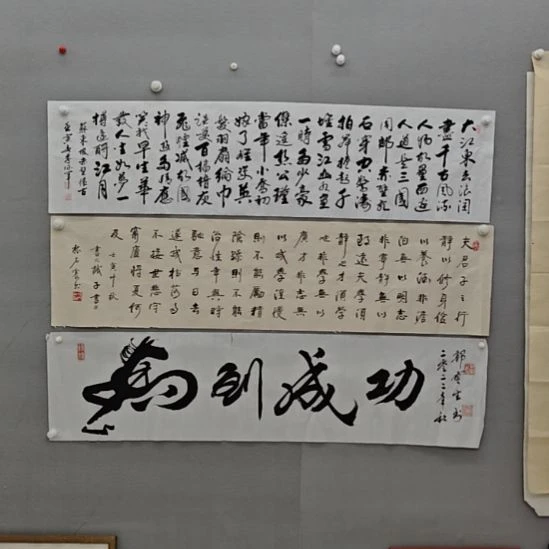 大江東去浪淘
盡千古風流
人物故壘西邊
人道是三國
周郎赤壁亂
石穿空驚濤
拍岸捲起千
堆雪江山如畫
一時多少豪
傑遙想公瑾
當年小喬初
嫁了雄姿英
發羽扇綸巾
談笑間檣櫓灰
飛煙滅故國
神遊多情應
笑我早生華
髮人生如夢一
樽還酹江月
蘇東坡赤壁懷古
夫君子之行
靜以修身儉
以養德非澹
泊無以明志
非寧靜無以
致遠夫學須
靜也才須學
也非學無以
廣才非志無
以成學淫慢
則不能勵精
險躁則不能
冶性年與時
馳意與日去
遂成枯落多
不接世悲守
窮廬將復何
及
壬寅仲秋
馬到成功
二零二二年秋